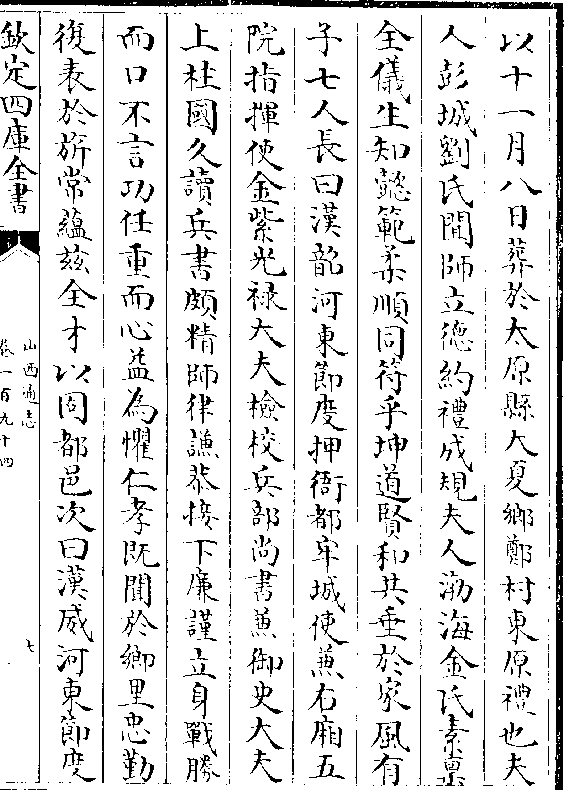 以十一月八日葬於太原縣大夏鄉鄭村東原禮也夫
人彭城劉氏閫師立德約禮成規夫人渤海金氏素稟
全儀生知懿範柔順同符乎坤道賢和共垂於家風有
子七人長曰漢韶河東節度押衙都牢城使兼右廂五
院指揮使金紫光祿大夫檢校兵部尚書兼御史大夫
上柱國久讀兵書頗精師律謙恭接下廉謹立身戰勝
而口不言功任重而心益為懼仁孝既聞於鄉里忠勤
復表於旂常蘊茲全才以固都邑次曰漢威河東節度
欽定四庫全書
山西通志
卷一百九十四
七